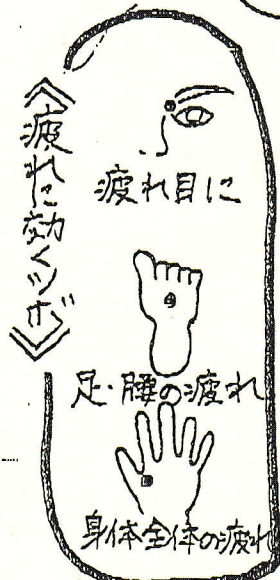 《疲れに効くツボ》
疲れ目に
足・腰の疲れ
身体全体の疲れ